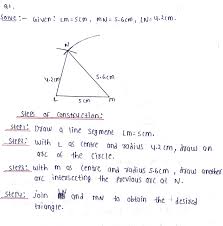 Q1.
Solve:- Given: LM=5cm, MN=5.6cm, LN=4.2cm.
N
4.2cm
5.6cm
L
5cm
M
Steps of Construction:
Step1: Draw a line segment LM=5cm.
Step2: With L as centre and radius 4.2cm, draw an
arc of the circle.
Step3: With M as centre and radius 5.6cm, draw another
arc intersecting the previous arc at N.
Step4: Join and MN to obtain the desired
triangle.